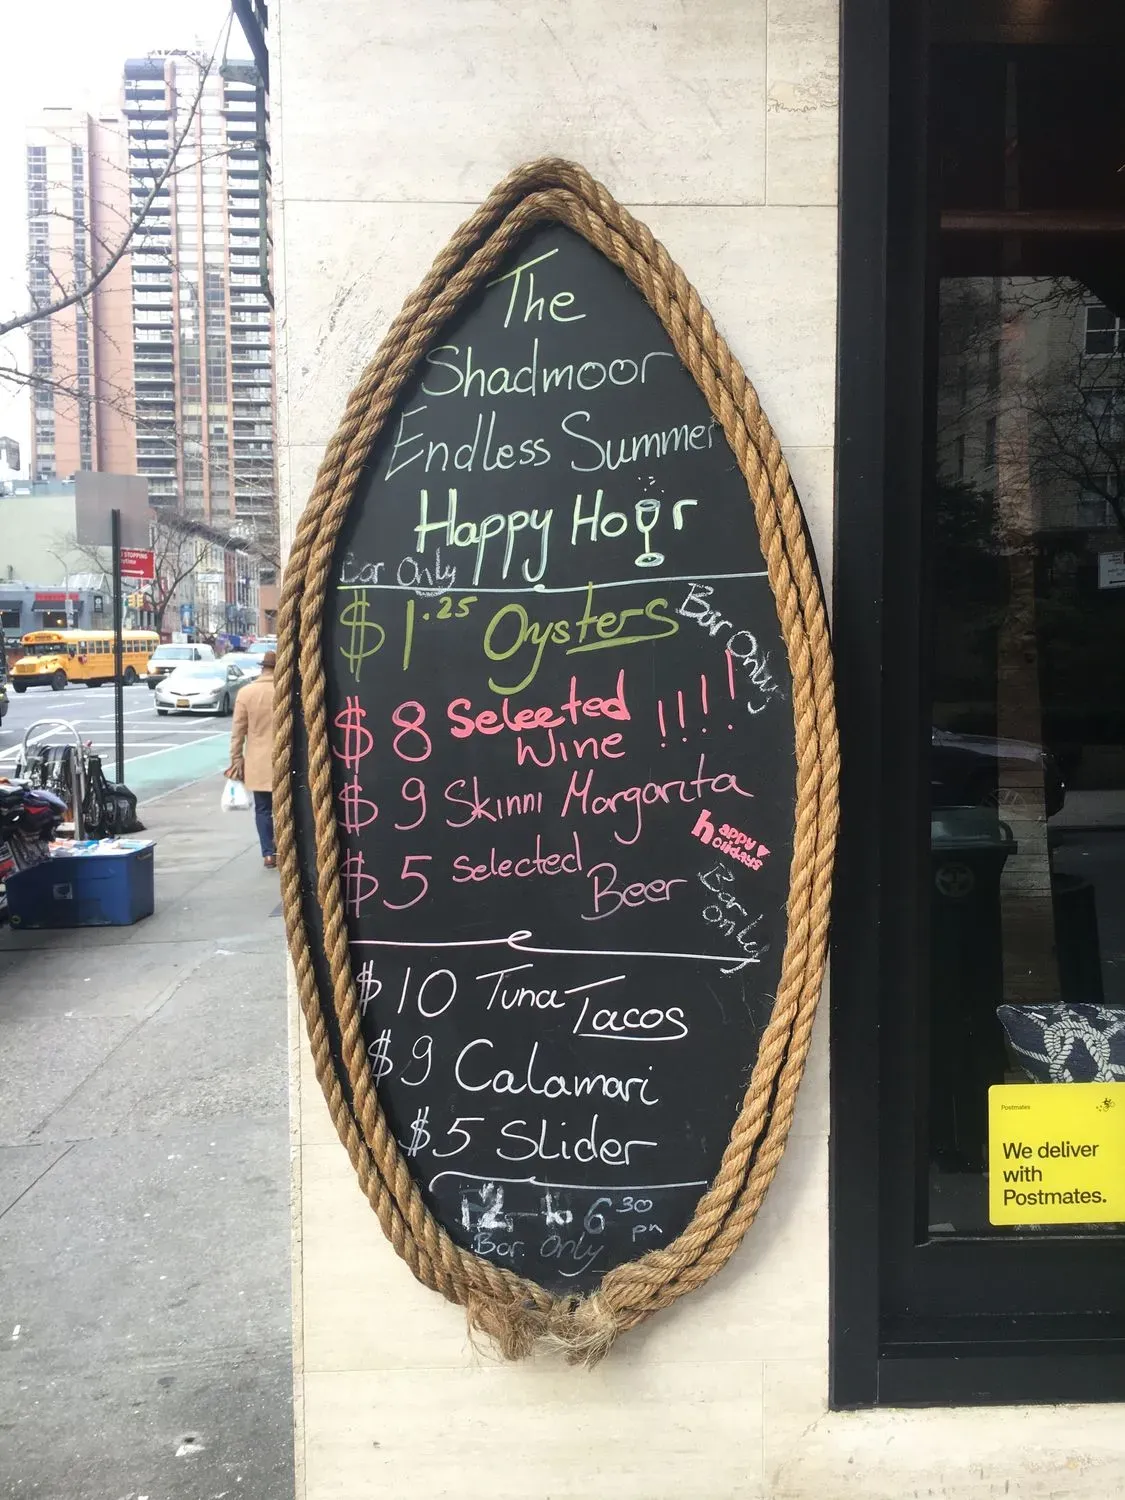 The
Shadmoor
Endless Summer
Happy Hour
Bar Only
$1.25 Oysters
Bar Only
$8 Selected
Wine !!!!
$9 Skinni Margarita
happy
holidays
$5 Selected
Beer
Bar
Only
$10 Tuna Tacos
$9 Calamari
$5 Slider
12 - to 6 30 pm
Bar Only
STOPPING
Postmates
We deliver
with
Postmates.